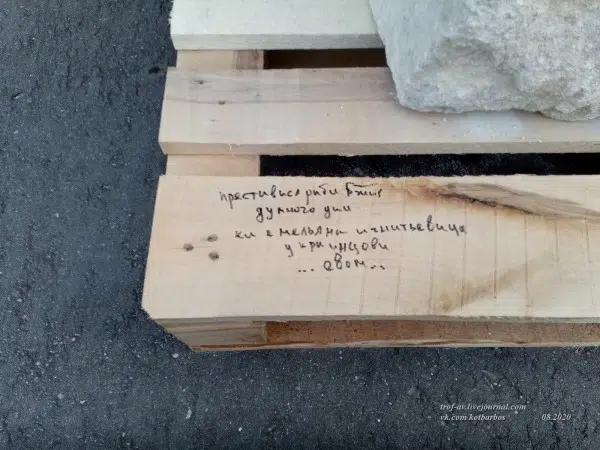 престивися раби Бжие
думного дии
ки емельяна игнитьевица
украинцови
... евом...
trof-av.livejournal.com
vk.com/kotbarbos
08.2020